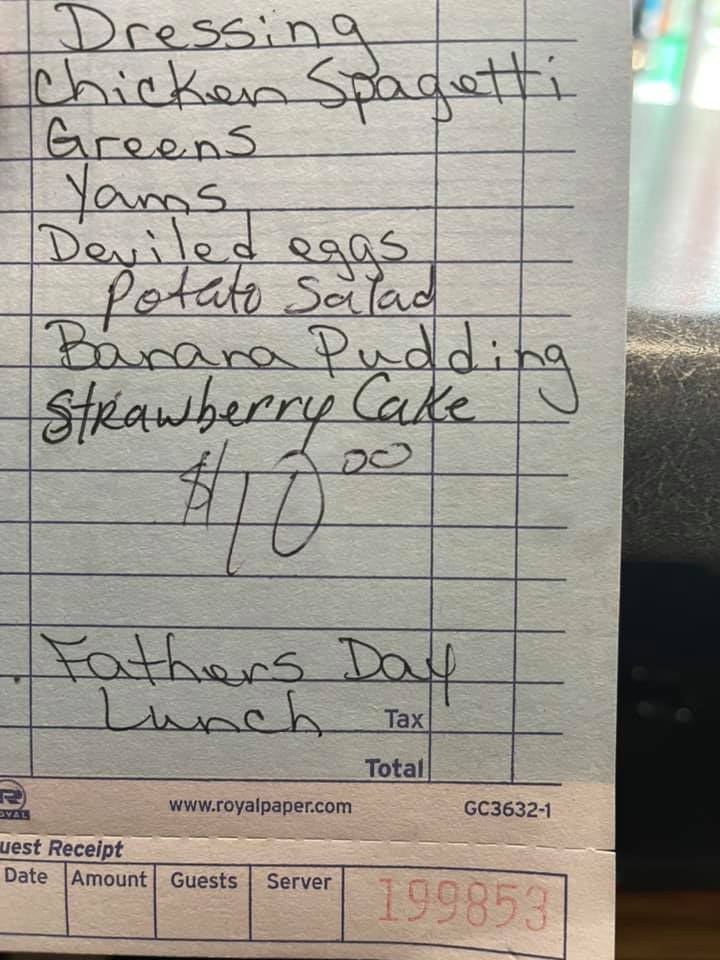 Dressing
Chicken Spagetti
Greens
Yams
Deviled eggs
Potato Salad
Banana Pudding
Strawberry Cake
$10.00
Fathers Day
Lunch
Tax
Total
R
www.royalpaper.com GC3632-1
uest Receipt
Date Amount Guests Server 199853